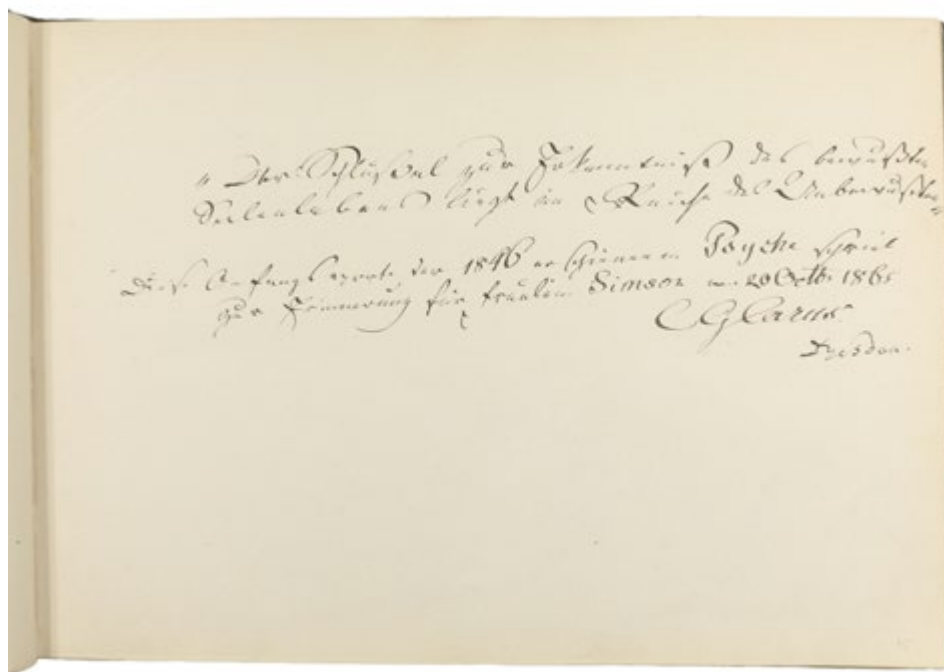 „Der Schlüßel zur Erkenntniß des bewußten
Seelenlebens liegt im Reiche des Unbewußten“
Diese Anfangsworte der 1846 erschienenen Psyche schrieb
zur Erinnerung für Fräulein Simson 20 Octb 1865
CGCarus
Dresden.